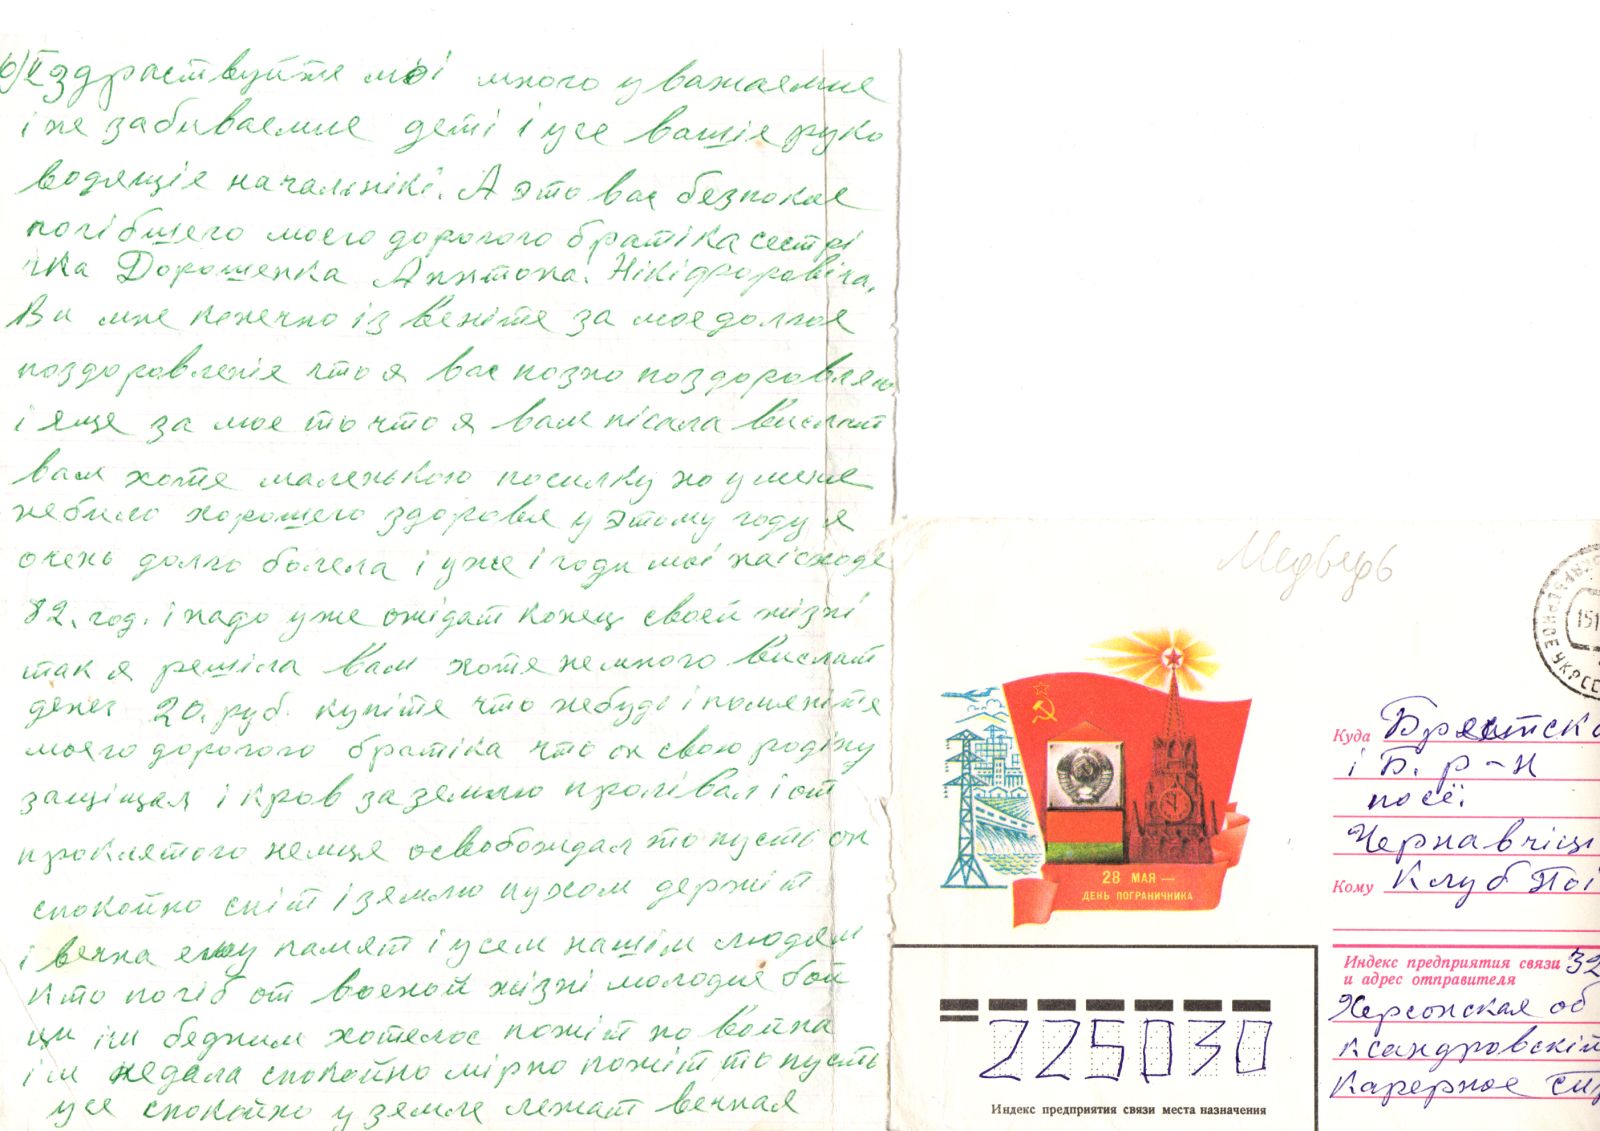 здраствуйте мої много уважаемие
і не забиваемие деті і усе вашіе руко
водящіе начальнікі. А это вас безпокое
погібшего моего дорогого братіка сестрі
чка Дорошенка Антона. Нікіфоровіча,
Ви мне конечно ізвеніте за мое долгое
поздоровленіе что я вас позно поздоровляю
і яще за мое то что я вам пісала вислат
вам хоте маленькою посилку но у мене
небило хорошего здоровя у этому году я
очень долго болела і уже і годи мої на ісходе
82. год. і надо уже ожідат конец своей жізні
так я решіла вам хоте немного вислат
денег 20. руб. купіте что небудь і помяніте
моего дорогого братіка что он свою родіну
защіщал і кров за землю пролівал і от
проклятого немця освобождал то пусть он
спокойно спіт і землю пухом держіт
і вечна ему памят і усем нашім людям
кто погіб от военой жізні молодие бой
ци ім бедним хотелос пожіт но война
ім недала спокойно мірно пожіт то пусть
усе спокойно у земле лежат вечная
Медведь
УКРСС
28 МАЯ —
ДЕНЬ ПОГРАНИЧНИКА
Куда
і Б. р-н
посё.
Чернавчіц
Кому Клуб Поі
Индекс предприятия связи 32
и адрес отправителя
Херсонская об
ксандровскій
Карерное
225030
Индекс предприятия связи места назначения